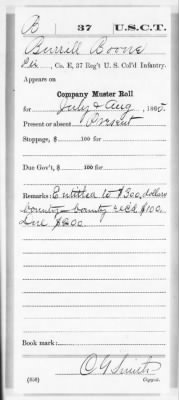 B 37 U.S.C.T.
Burrell Boone
Pvt, Co. E, 37 Reg't U. S. Col'd Infantry.
Appears on
Company Muster Roll
for July & Aug, 1865.
Present or absent Present
Stoppage, $ 100 for
Due Gov't, $ 100 for
Remarks: Entitled to $300, dollars
bounty – bounty recd $100.
due $200.
Book mark:
O G Smith
(358) Copyist.